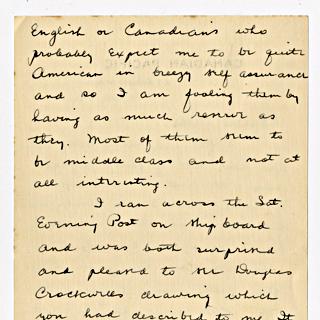 English or Canadians who
probably expect me to be quite
American in breezy self assurance
and so I am fooling them by
having as much reserve as
they. Most of them seem to
be middle class and not at
all interesting.
I ran across the Sat.
Evening Post on shipboard
and was both surprised
and pleased to see Douglas
Crockwells drawing which
you had described to me. It